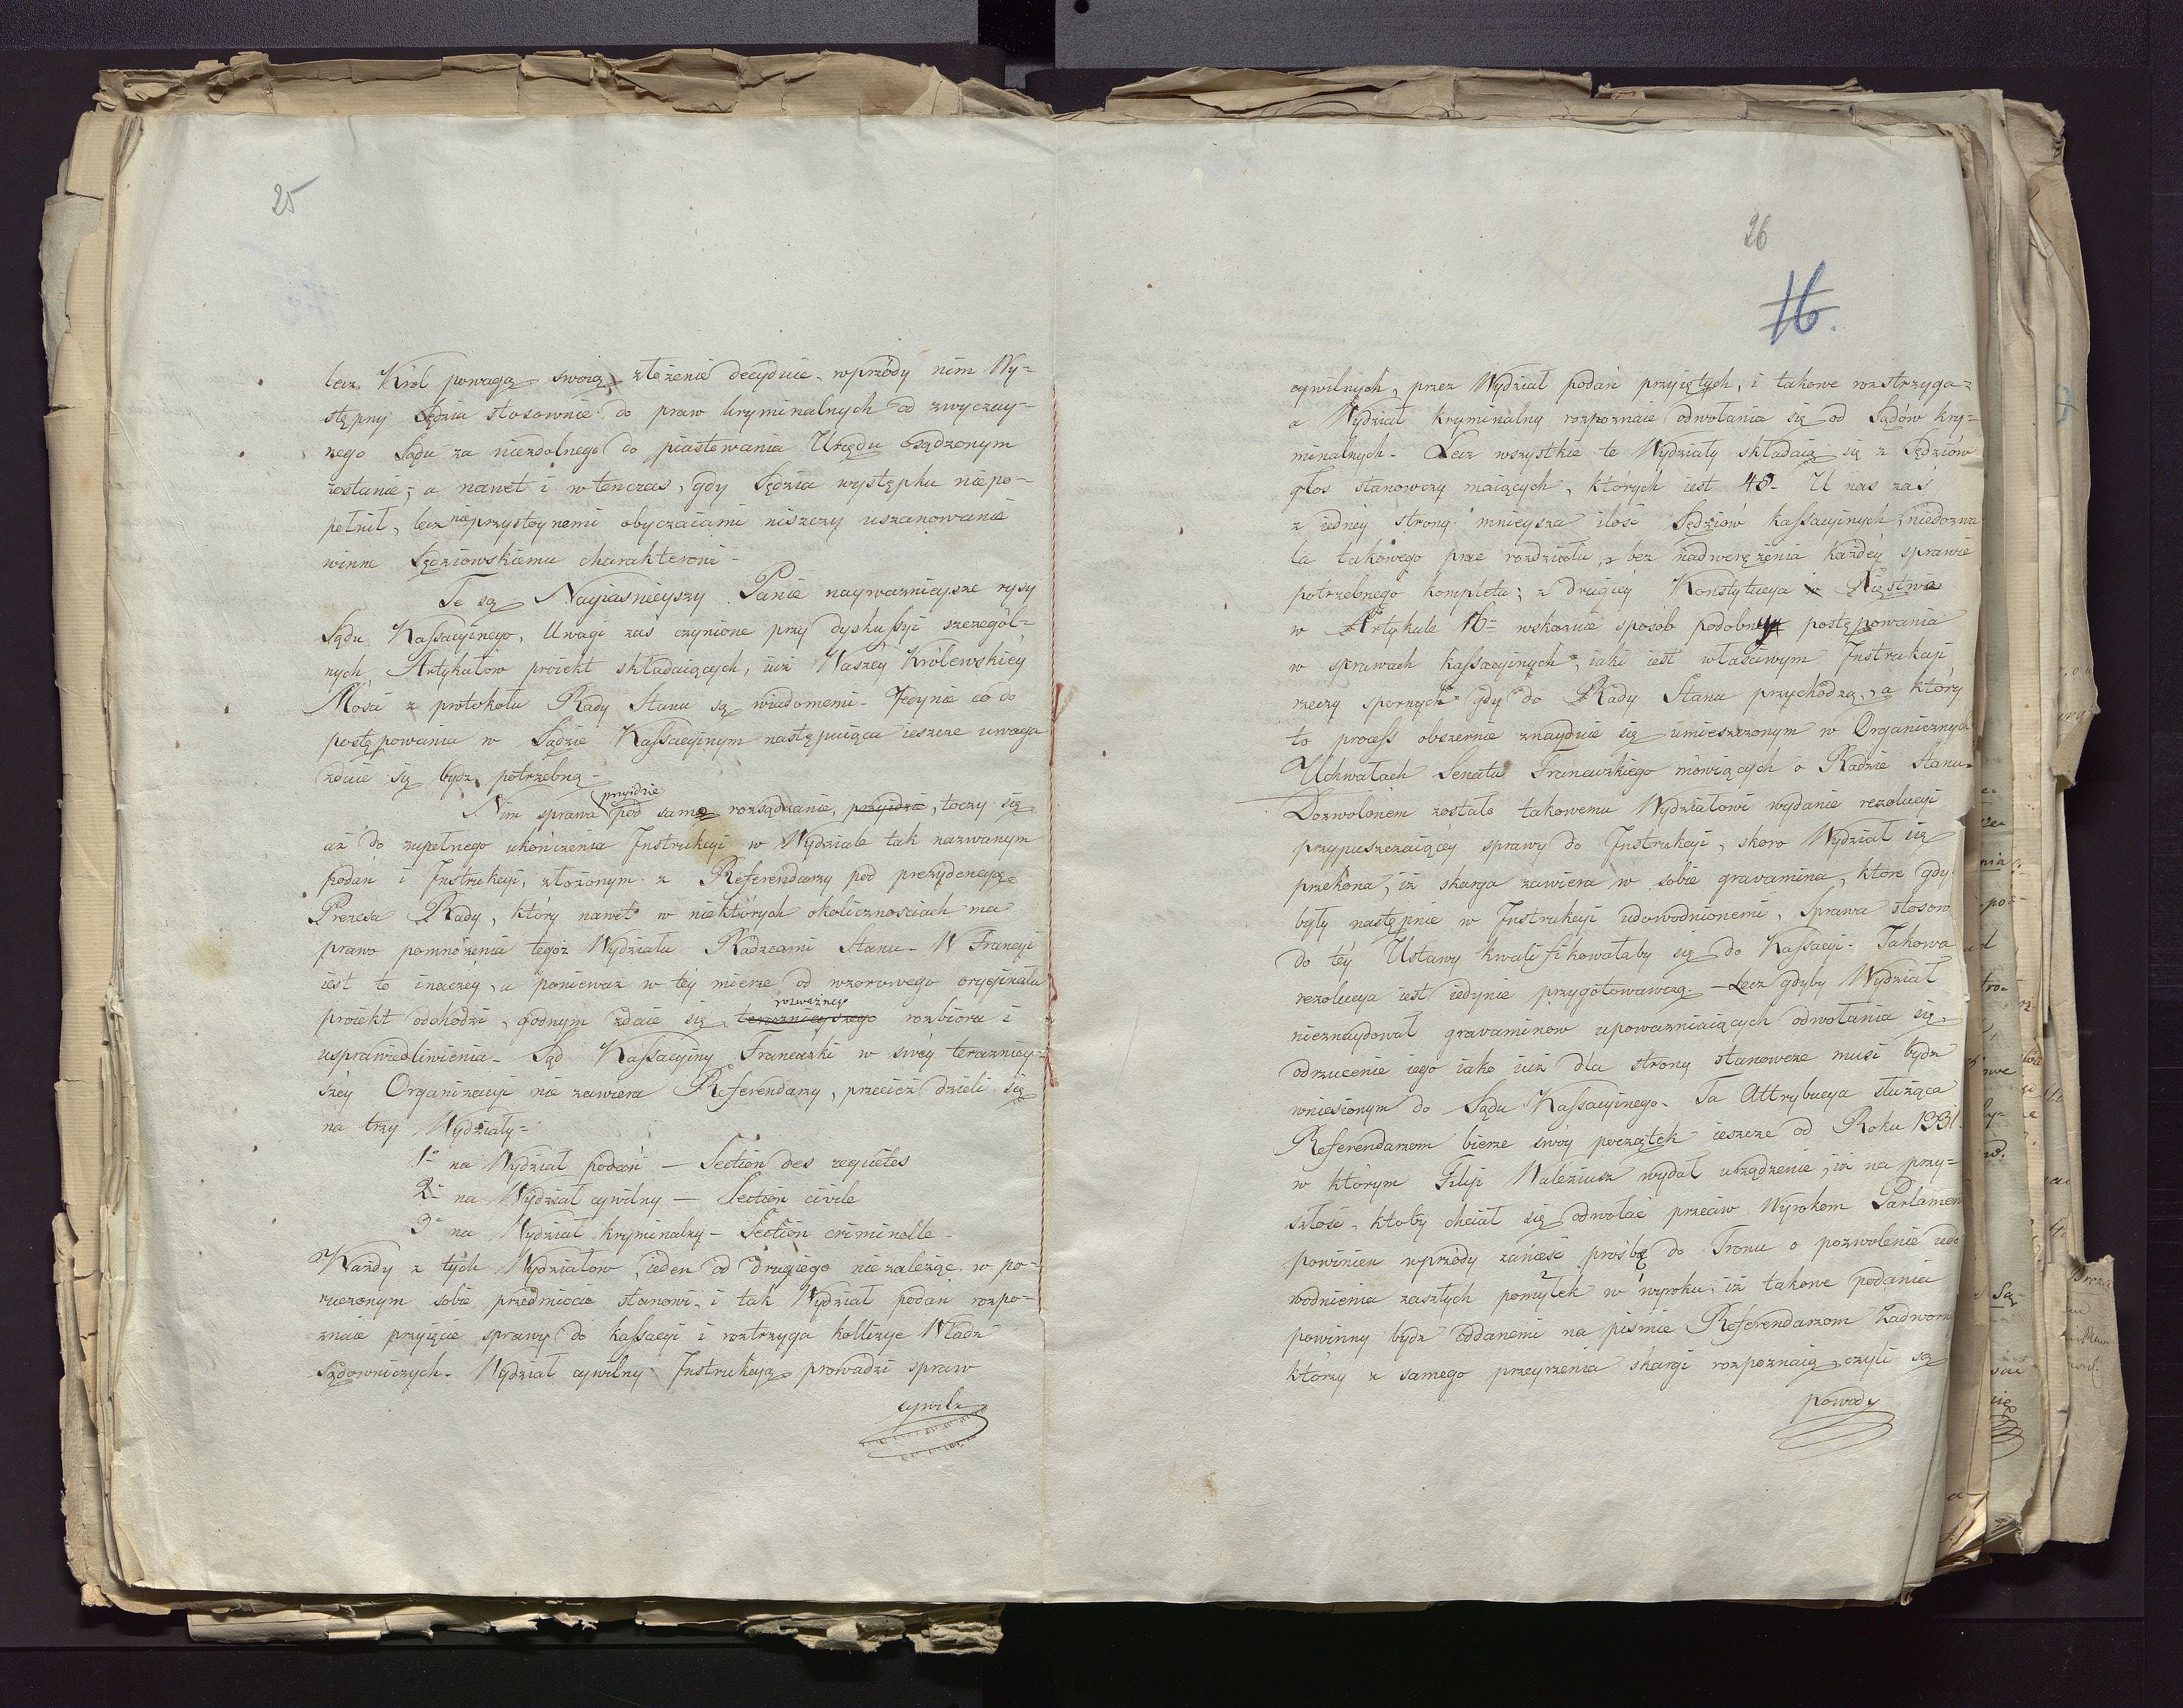 25
lecz Król powagą swoią złożenie decyduie, wprzódy nim Wy-
stępny Sędzia stosownie do praw kryminalnych od zwyczay-
nego Sądu za niezdolnego do piastowania Urzędu osądzonym
zostanie; a nawet i wtenczas, gdy Sędzia występku niepo-
pełnił, lecz nieprzystoynemi obyczaiami niszczy uszanowanie
winne Sędziowskiemu charakterowi -
Te są Nayiasnieyszy Panie nayważnieysze rysy
Sądu Kassacyinego, Uwagi zaś czynione przy dyskussyi szczegól-
nych Artykułów proiekt składaiących, iuż Waszey Królewskiey
Mości z protokołu Rady Stanu są wiadomemi - Jedynie co do
postępowania w Sądzie Kassacyinym następuiąca ieszcze uwaga
zdaie się bydź potrzebną -
przyidzie
Nim sprawa pod samo rozsądzenie, przyidzie, toczy się
aż do zupełnego ukończenia Instrukcyi w Wydziale tak nazwanym
podań i Instrukcyi, złożonym z Referendarzy pod prezydencyą
Prezesa Rady, który nawet w niektórych okolicznościach ma
prawo pomnożenia tegoż Wydziału Radzcami Stanu - W Francyi
iest to inaczey, a ponieważ w tey mierze od wzorowego oryginału
rozważnego
proiekt odchodzi, godnym zdaie się, teraznieyszego rozbioru i
usprawiedliwienia - Sąd Kassacyiny Francuzki w swey terazniey-
szey Organizacyi nie zawiera Referendarzy, przecież dzieli się
na trzy Wydziały -
1o na Wydział podań — Section des requêtes
2o na Wydział cywilny — Section civile
3o na Wydział kryminalny — Section criminelle -
Każdy z tych Wydziałów, ieden od drugiego niezależąc w po-
ruczonym sobie przedmiocie stanowi, i tak Wydział podań rozpo-
znaie przyięcie sprawy do kassacyi i roztrzyga kollizye Władz
Sądowniczych - Wydział cywilny Instrukcyą prowadzi spraw
cywiln
26
16.
cywilnych, przez Wydział podań przyiętych, i takowe rozstrzyga-
a Wydział kryminalny rozpoznaie odwołania się od Sądów kry-
minalnych - Lecz wszystkie te Wydziały składaią się z Sędziów
głos stanowczy maiących, których iest 48 - U nas zaś
z iedney strony mnieysza ilość Sędziów kassacyinych niedozwa
la takowego prze rozdziału, bez nadwerężenia każdey sprawie
potrzebnego kompletu; z drugiey Konstytucya Xięstwa
w Artykule 16m wskazuie sposób podobny postępowania
w sprawach kassacyinych, iaki iest właściwym Instrukcyi
rzeczy spornych gdy do Rady Stanu przychodzą, a który
to process obszernie znayduie się umieszczonym w Organicznych
Uchwałach Senatu Francuzkiego mówiących o Radzie Stanu -
Dozwolonem zostało takowemu Wydziałowi wydanie rezolucyi
przypuszczaiącey sprawy do Instrukcyi, skoro Wydział się
przekona, iż skarga zawiera w sobie gravamina, które gdy
były następnie w Instrukcyi udowodnionemi, Sprawa stosow
do tey Ustawy kwalifikowałaby się do Kassacyi - Takowa
rezolucya iest iedynie przygotowawczą. - Lecz gdyby Wydział
nieznaydował gravaminów upoważniaiących odwołania się,
odrzucenie iego iako iuż dla strony stanowcze musi bydź
wniesionym do Sądu Kassacyinego - Ta Attrybucya służąca
Referendarzom bierze swóy początek ieszcze od Roku 1331.
w którym Filip Waleziusz wydał urządzenie, iż na przy-
szłość, ktoby chciał się odwołać przeciw Wyrokom Parlamen
powinien wprzódy zanieść prośbę do Tronu o pozwolenie udo
wodnienia zaszłych pomyłek w wyroku; iż takowe podania
powinny bydź oddanemi na piśmie Referendarzom Nadworn
którzy z samego przeyrzenia skargi rozpoznaią, czyli są
powody